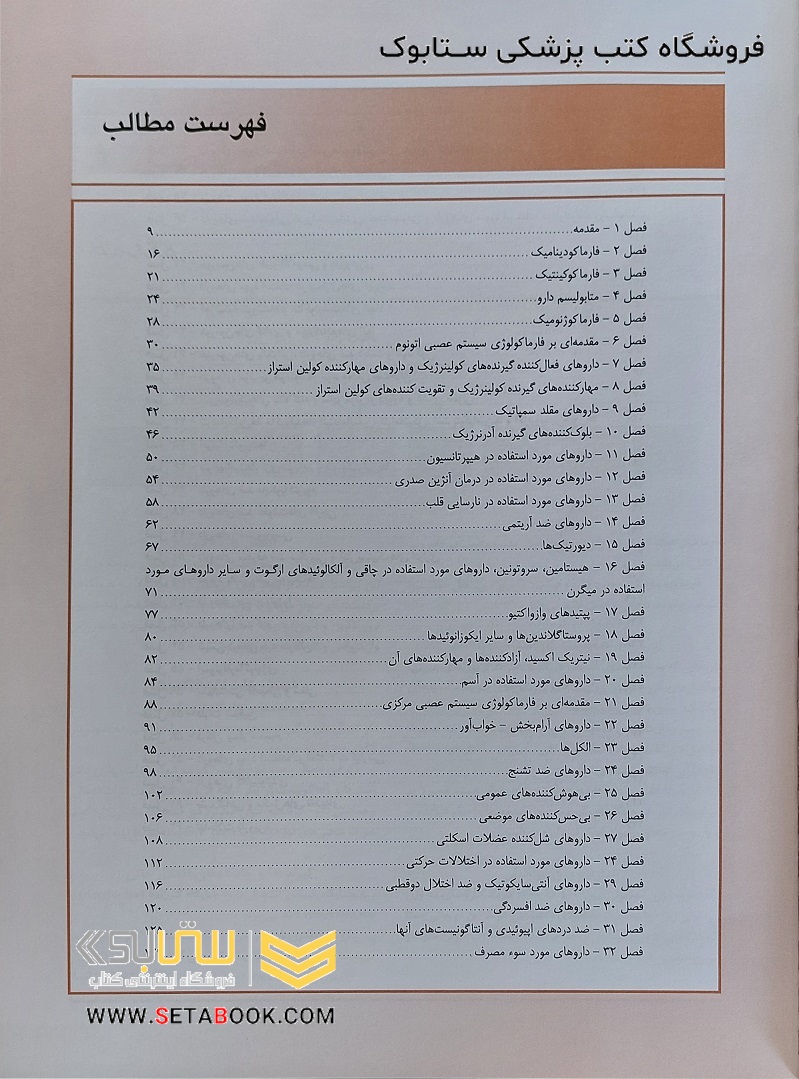 فروشگاه کتب پزشکی ستابوک
فهرست مطالب
فصل ۱ – مقدمه ۹
فصل ۲ – فارماکودینامیک ۱۶
فصل ۳ – فارماکوکینتیک ۲۱
فصل ۴ – متابولیسم دارو ۲۴
فصل ۵ – فارماکوژنومیک ۲۸
فصل ۶ – مقدمه‌ای بر فارماکولوژی سیستم عصبی اتونوم ۳۰
فصل ۷ – داروهای فعال‌کننده گیرنده‌های کولینرژیک و داروهای مهارکننده کولین استراز ۳۵
فصل ۸ – مهارکننده‌های گیرنده کولینرژیک و تقویت کننده‌های کولین استراز ۳۹
فصل ۹ – داروهای مقلد سمپاتیک ۴۲
فصل ۱۰ – بلوک‌کننده‌های گیرنده آدرنرژیک ۴۶
فصل ۱۱ – داروهای مورد استفاده در هیپرتانسیون ۵۰
فصل ۱۲ – داروهای مورد استفاده در درمان آنژین صدری ۵۴
فصل ۱۳ – داروهای مورد استفاده در نارسایی قلب ۵۸
فصل ۱۴ – داروهای ضد آریتمی ۶۲
فصل ۱۵ – دیورتیک‌ها ۶۷
فصل ۱۶ – هیستامین، سروتونین، داروهای مورد استفاده در چاقی و آلکالوئیدهای ارگوت و سایر داروهای مورد
استفاده در میگرن ۷۱
فصل ۱۷ – پپتیدهای وازواکتیو ۷۷
فصل ۱۸ – پروستاگلاندین‌ها و سایر ایکوزانوئیدها ۸۰
فصل ۱۹ – نیتریک اکسید، آزادکننده‌ها و مهارکننده‌های آن ۸۲
فصل ۲۰ – داروهای مورد استفاده در آسم ۸۴
فصل ۲۱ – مقدمه‌ای بر فارماکولوژی سیستم عصبی مرکزی ۸۸
فصل ۲۲ – داروهای آرام‌بخش – خواب‌آور ۹۱
فصل ۲۳ – الکل‌ها ۹۵
فصل ۲۴ – داروهای ضد تشنج ۹۸
فصل ۲۵ – بی‌هوش‌کننده‌های عمومی ۱۰۲
فصل ۲۶ – بی‌حس‌کننده‌های موضعی ۱۰۶
فصل ۲۷ – داروهای شل‌کننده عضلات اسکلتی ۱۰۸
فصل ۲۴ – داروهای مورد استفاده در اختلالات حرکتی ۱۱۲
فصل ۲۹ – داروهای آنتی‌سایکوتیک و ضد اختلال دوقطبی ۱۱۶
فصل ۳۰ – داروهای ضد افسردگی ۱۲۰
فصل ۳۱ – ضد دردهای اپیوئیدی و آنتاگونیست‌های آنها ۱۲۵
فصل ۳۲ – داروهای مورد سوء مصرف
ستابوک
فروشگاه اینترنتی کتاب
WWW.SETABOOK.COM